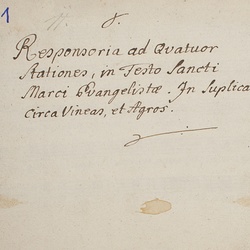 1
8.
Responsoria ad Quatuor
Stationes, in Festo Sancti
Marci Evangelistæ. In Suplica
circa Vineas, et Agros.